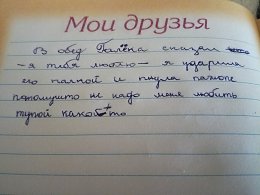 Мои друзья
В обед Галёна сказал что
- я тебя люблю - я ударила
его палкой и пнула патоме
патомушто не надо меня любить
тупой какоето